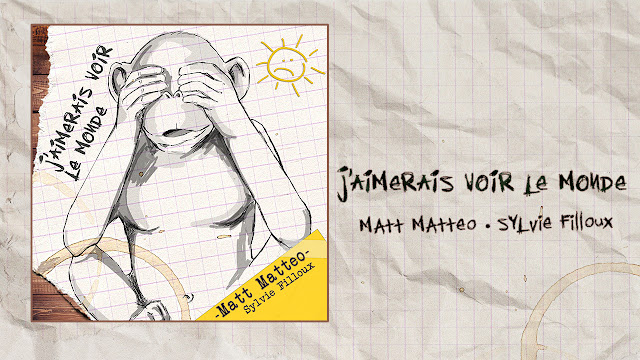 J'AIMERAIS VOIR
LE MONDE
-Matt Matteo-
Sylvie Filloux
J'AIMERAIS VOIR LE MONDE
MATT MATTEO • SYLVIE FILLOUX